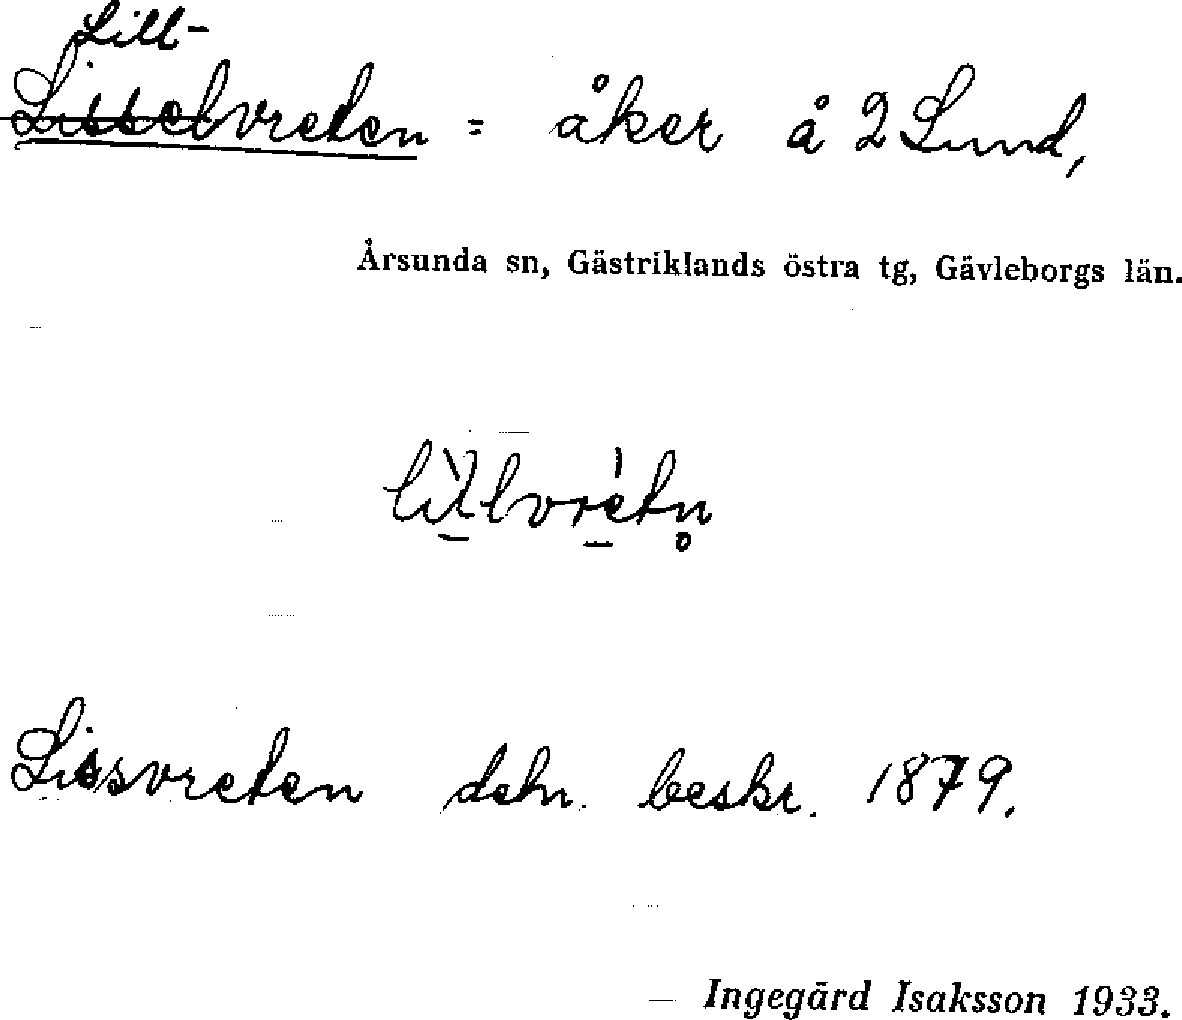 Lill-
Lisselvreten = åker å 2 Lund,
Årsunda sn, Gästriklands östra tg, Gävleborgs län.
lìllvrétn̥
Lissvreten dehn. beskr. 1879.
– Ingegärd Isaksson 1933.